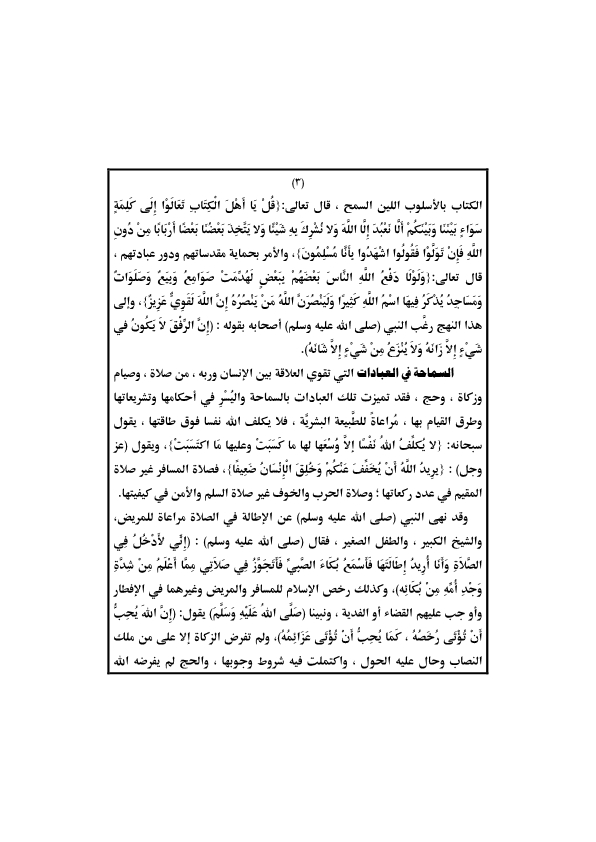 (٣)
الكتاب بالأسلوب اللين السمح ، قال تعالى:{قُلْ يَا أَهْلَ الْكِتَابِ تَعَالَوْا إِلَى كَلِمَةٍ
سَوَاءٍ بَيْنَنَا وَبَيْنَكُمْ أَلَّا نَعْبُدَ إِلَّا اللَّهَ وَلَا نُشْرِكَ بِهِ شَيْئًا وَلَا يَتَّخِذَ بَعْضُنَا بَعْضًا أَرْبَابًا مِنْ دُونِ
اللَّهِ فَإِنْ تَوَلَّوْا فَقُولُوا اشْهَدُوا بِأَنَّا مُسْلِمُونَ}، والأمر بحماية مقدساتهم ودور عبادتهم ،
قال تعالى:{وَلَوْلَا دَفْعُ اللَّهِ النَّاسَ بَعْضَهُمْ بِبَعْضٍ لَهُدِّمَتْ صَوَامِعُ وَبِيَعٌ وَصَلَوَاتٌ
وَمَسَاجِدُ يُذْكَرُ فِيهَا اسْمُ اللَّهِ كَثِيرًا وَلَيَنْصُرَنَّ اللَّهُ مَنْ يَنْصُرُهُ إِنَّ اللَّهَ لَقَوِيٌّ عَزِيزٌ}، وإلى
هذا النهج رغَّب النبي (صلى الله عليه وسلم) أصحابه بقوله : (إِنَّ الرِّفْقَ لاَ يَكُونُ في
شَيْءٍ إِلاَّ زَانَهُ وَلاَ يُنْزَعُ مِنْ شَيْءٍ إِلاَّ شَانَهُ).
السماحة في العبادات التي تقوي العلاقة بين الإنسان وربه ، من صلاة ، وصيام
وزكاة ، وحج ، فقد تميزت تلك العبادات بالسماحة واليُسْرِ في أحكامها وتشريعاتها
وطرق القيام بها ، مُراعاةً للطَّبيعة البشريَّة ، فلا يكلف الله نفسا فوق طاقتها ، يقول
سبحانه: {لا يُكلِّفُ اللهُ نَفْسًا إلاَّ وُسْعَها لها ما كَسَبَتْ وعليها مَا اكتَسَبَتْ}، ويقول (عز
وجل) : {يرِيدُ اللَّهُ أَنْ يُخَفِّفَ عَنْكُمْ وَخُلِقَ الْإِنْسَانُ ضَعِيفًا}، فصلاة المسافر غير صلاة
المقيم في عدد ركعاتها ؛ وصلاة الحرب والخوف غير صلاة السلم والأمن في كيفيتها.
وقد نهى النبي (صلى الله عليه وسلم) عن الإطالة في الصلاة مراعاة للمريض،
والشيخ الكبير ، والطفل الصغير ، فقال (صلى الله عليه وسلم) : (إِنِّي لأَدْخُلُ فِي
الصَّلاَةِ وَأَنَا أُرِيدُ إِطَالَتَهَا فَأَسْمَعُ بُكَاءَ الصَّبِيِّ فَأَتَجَوَّزُ فِي صَلاَتِي مِمَّا أَعْلَمُ مِنْ شِدَّةِ
وَجْدِ أُمِّهِ مِنْ بُكَائِهِ)، وكذلك رخص الإسلام للمسافر والمريض وغيرهما في الإفطار
وأو جب عليهم القضاء أو الفدية ، ونبينا (صَلَّى اللهُ عَلَيْهِ وَسَلَّمَ) يقول: (إِنَّ اللهَ يُحِبُّ
أَنْ تُؤْتَى رُخَصُهُ ، كَمَا يُحِبُّ أَنْ تُؤْتَى عَزَائِمُهُ)، ولم تفرض الزكاة إلا على من ملك
النصاب وحال عليه الحول ، واكتملت فيه شروط وجوبها ، والحج لم يفرضه الله